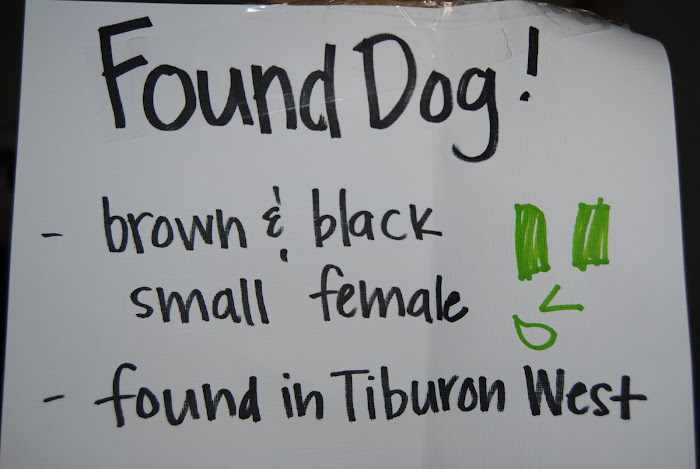 Found Dog!
- brown & black
small female
- found in Tiburon West